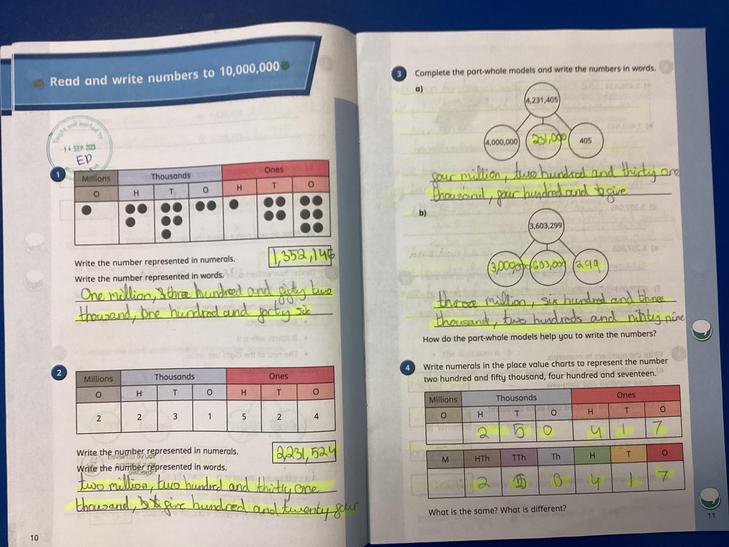 Read and write numbers to 10,000,000
14 SEP 2023
ED
1
Millions Thousands Ones
O H T O H T O
Write the number represented in numerals. 1,352,146
Write the number represented in words.
One million, three hundred and fifty two
thousand, one hundred and forty six
2
Millions Thousands Ones
O H T O H T O
2 2 3 1 5 2 4
Write the number represented in numerals. 2,231,524
Write the number represented in words.
two million, two hundred and thirty one
thousand, five hundred and twenty four
10
3 Complete the part-whole models and write the numbers in words.
a)
4,231,405
4,000,000 231,000 405
four million, two hundred and thirty one
thousand, four hundred and five
b)
3,603,299
3,000,000 603,000 299
three million, six hundred and three
thousand, two hundreds and ninty nine
How do the part-whole models help you to write the numbers?
4 Write numerals in the place value charts to represent the number
two hundred and fifty thousand, four hundred and seventeen.
Millions Thousands Ones
O H T O H T O
2 5 0 4 1 7
M HTh TTh Th H T O
2 5 0 4 1 7
What is the same? What is different?
11